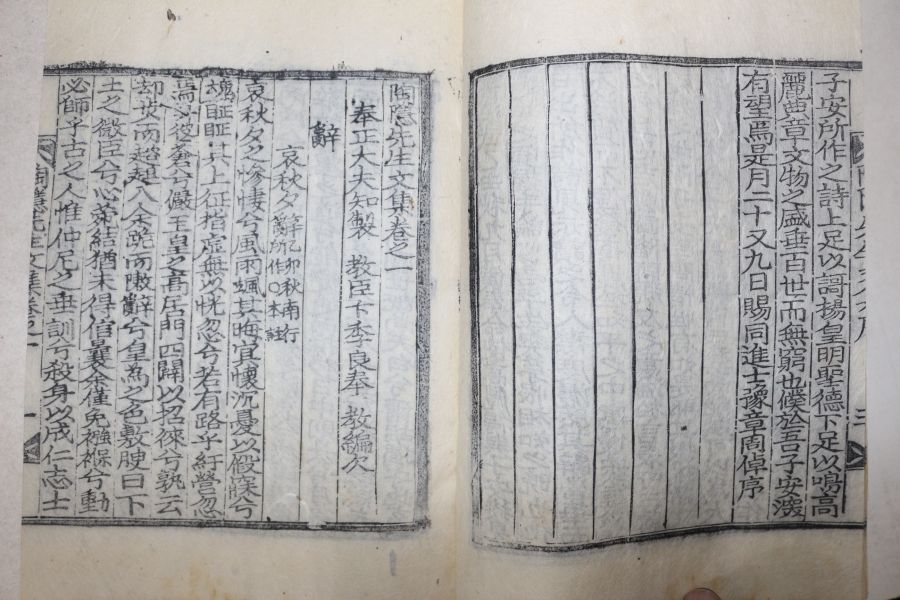 子安所作之詩上足以謌揚皇明聖德下足以鳴高
麗典章文物之盛垂百世而無窮也僕於吾子安深
有望焉是月二十又九日賜同進士豫章周倬序
陶隱先生文集卷之一
奉正大夫知製 教臣卞季良奉 教編次
辭
哀秋夕辭己卯秋南行
爲所作○本註
哀秋夕之慘悽兮風雨颯其晦宜懷沉憂以假寐兮
魂眐眐其上征指虛無以恍忽兮若有路乎紆營忽
焉以後蹇兮儼玉皇之高居門四闢以招徠兮孰云
却立而超趄入余跪而陳辭兮皇為之色敷腴曰下
土之微臣兮心菀結猶未得信曩余僅免襁褓兮動
必師乎古之人惟仲尼之垂訓兮殺身以成仁志士
陶隱先生文集卷之一 一